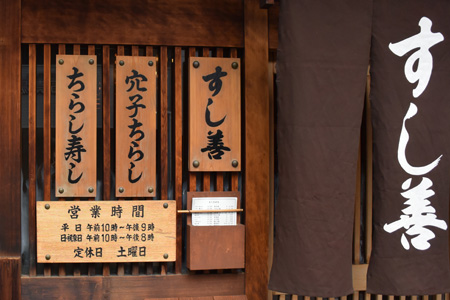 すし善
穴子ちらし
ちらし寿し
営業時間
平日 午前10時〜午後9時
日・祝祭日 午前10時〜午後8時
定休日 土曜日
すし善